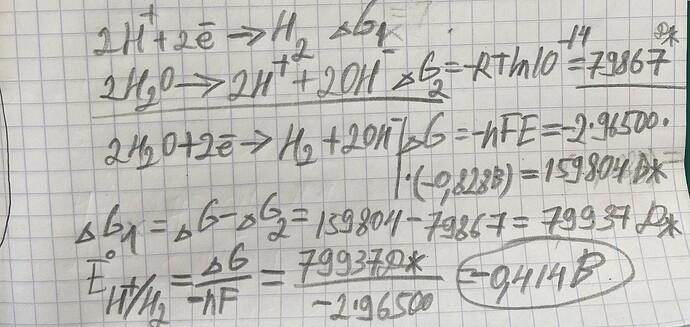 2H⁺+2ē → H₂ ΔG₁
2H₂O → 2H⁺ + 2OH⁻ ΔG₂ = -RTln10⁻¹⁴ = 79867 Дж
2H₂O+2ē → H₂ + 2OH⁻ | ΔG = -nFE = -2·96500·
·(-0,828В) = 159804 Дж
ΔG₁ = ΔG - ΔG₂ = 159804 - 79867 = 79937 Дж
E°H⁺/H₂ = ΔG/-nF = 79937Дж/-2·96500 = -0,414 В